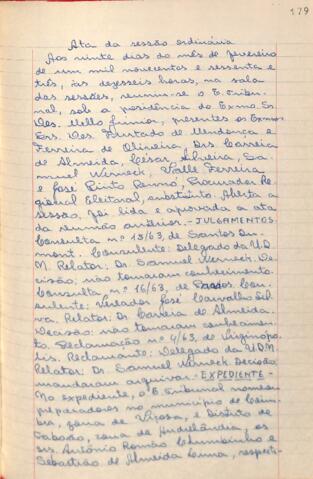 179
Ata da sessão ordinária
Aos vinte dias do mês de fevereiro
de um mil novecentos e sessenta e
três, às dezesseis horas, na sala
das sessões, reuniu-se o E. Tribu-
nal, sob a presidência do Exmo. Sr.
Des. Mello Júnior, presentes os Exmos.
Srs. Des. Furtado de Mendonça e
Ferreira de Oliveira, Drs. Correia
de Almeida, César Silveira, Sa-
muel Werneck, Valle Ferreira
e José Pinto Renno, Procurador Re-
gional Eleitoral, substituto. Aberta a
sessão, foi lida e aprovada a ata
da reunião anterior. - JULGAMENTOS.
Consulta nº 13/63, de Santos Du-
mont. Consulente: Delegado da U.D.
N. Relator: Dr. Samuel Werneck. De-
cisão: não tomaram conhecimento.
Consulta nº 16/63, de Passos. Con-
sulente: Vereador José Carvalho Sil-
va. Relator: Dr. Correia de Almeida.
Decisão: não tomaram conhecimen-
to. Reclamação nº 4/63, de Virginópo-
lis. Reclamante: Delegado da UDN.
Relator: Dr. Samuel Werneck. Decisão:
mandaram arquivar. - EXPEDIENTE -
No expediente, o E. Tribunal nomeou
preparadores no município de Coim-
bra, zona de Viçosa, e Distrito de
zona de Andrelândia, os
srs. Antônio Romão e
Sebastião de Almeida respecti-